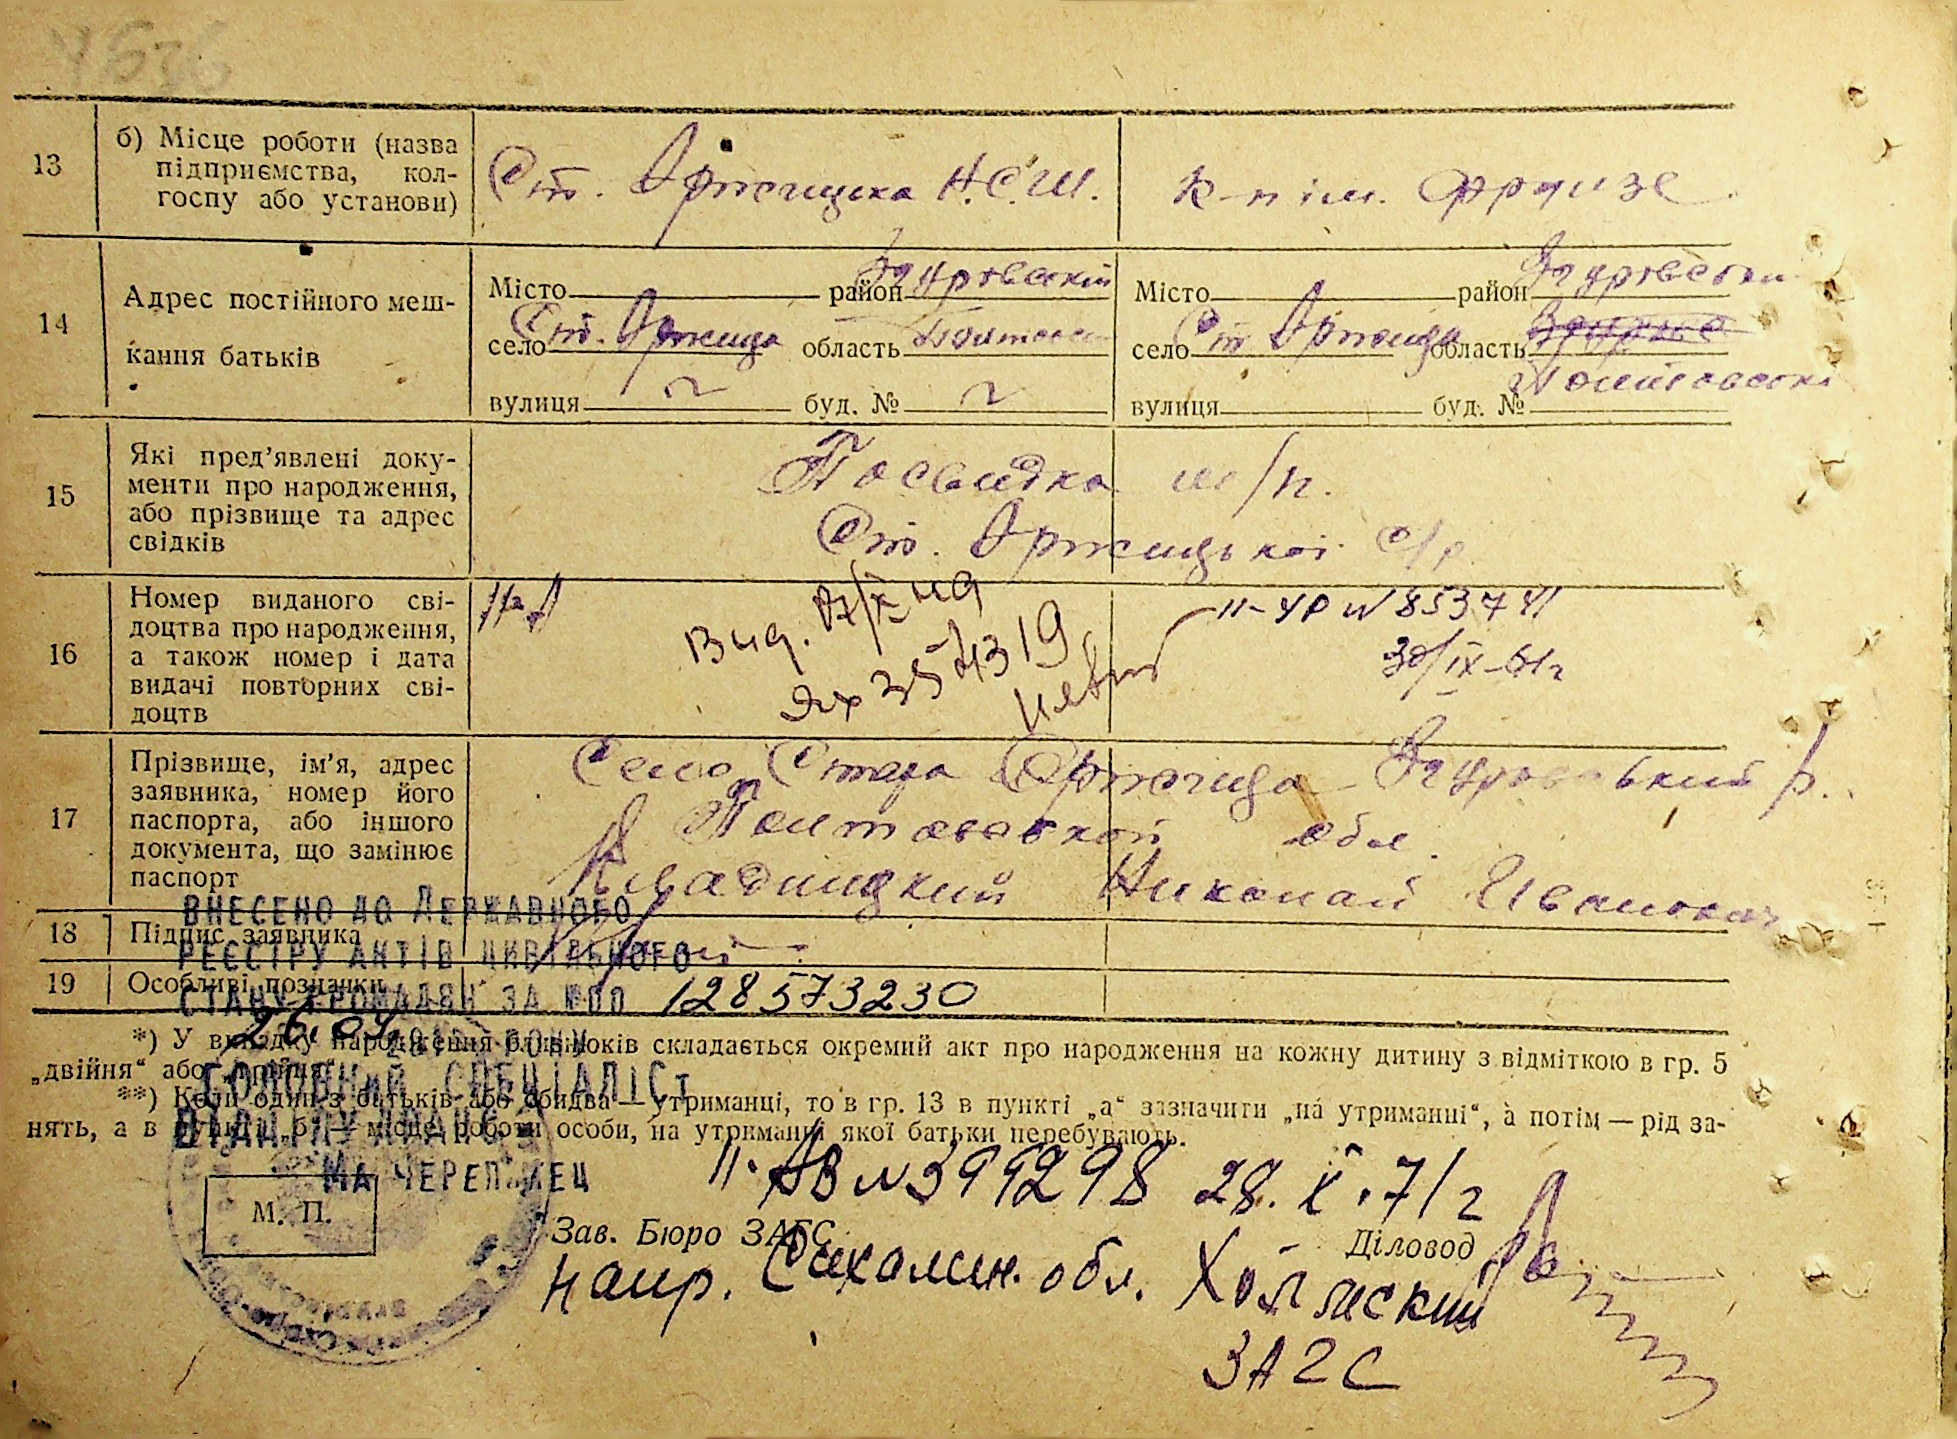 13
б) Місце роботи (назва
підприємства, кол-
госпу або установи)
Ст. Оржицька Н.С.Ш.
к-п ім. Фрунзе
14
Адрес постійного меш-
кання батьків
Місто район Згуровский
село Ст. Оржица область Полтавск
вулиця буд. №
Місто район Згуровский
село Ст Оржица область
Полтавскі
вулиця буд. №
15
Які пред’явлені доку-
менти про народження,
або прізвище та адрес
свідків
Посвидка
Ст. Оржицької с/р
16
Номер виданого сві-
доцтва про народження,
а також номер і дата
видачі повторних сві-
доцтв
II-УР №
17
Прізвище, ім’я, адрес
заявника, номер його
паспорта, або іншого
документа, що замінює
паспорт
Село Стара Оржица Згуровський р.
Полтавской обл.
Николай Иванович
18
Підпис заявника
19
Особливі позначки
ВНЕСЕНО ДО ДЕРЖАВНОГО
РЕЄСТРУ АКТІВ ЦИВІЛЬНОГО
СТАНУ ГРОМАДЯН ЗА №00 128573230
РОКУ
*) У випадку народження близнюків складається окремий акт про народження на кожну дитину з відміткою в гр. 5
„двійня“ або
ГОЛОВНИЙ СПЕЦІАЛІСТ
**) Коли один з батьків або обидва — утриманці, то в гр. 13 в пункті „а“ зазначити „на утриманні“, а потім — рід за-
нять, а в пункті „б“ у місце роботи особи, на утриманні якої батьки перебувають.
II-АВ № 399298 28.X.71г
М. П.
Зав. Бюро ЗАГС
Діловод
напр. Сахалин. обл. Холмский
ЗАГС